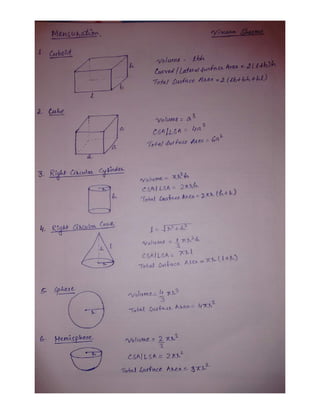 Mensuration.
1. Cuboid
h
b
l
Volume = lbh
Curved/Lateral Surface Area = 2(l+b)h
Total Surface Area = 2(lb+bh+hl)
2. Cube
a
a
a
Volume = a³
CSA/LSA = 4a²
Total Surface Area = 6a²
3. Right Circular Cylinder
r
h
Volume = πr²h
CSA/LSA = 2πrh
Total Surface Area = 2πr(h+r)
4. Right Circular Cone
h
l
r
l = √r²+h²
Volume = 1/3 πr²h
CSA/LSA = πrl
Total Surface Area = πr(l+r)
5. Sphere
r
Volume = 4/3 πr³
Total Surface Area = 4πr²
6. Hemisphere
r
Volume = 2/3 πr³
CSA/LSA = 2πr²
Total Surface Area = 3πr²